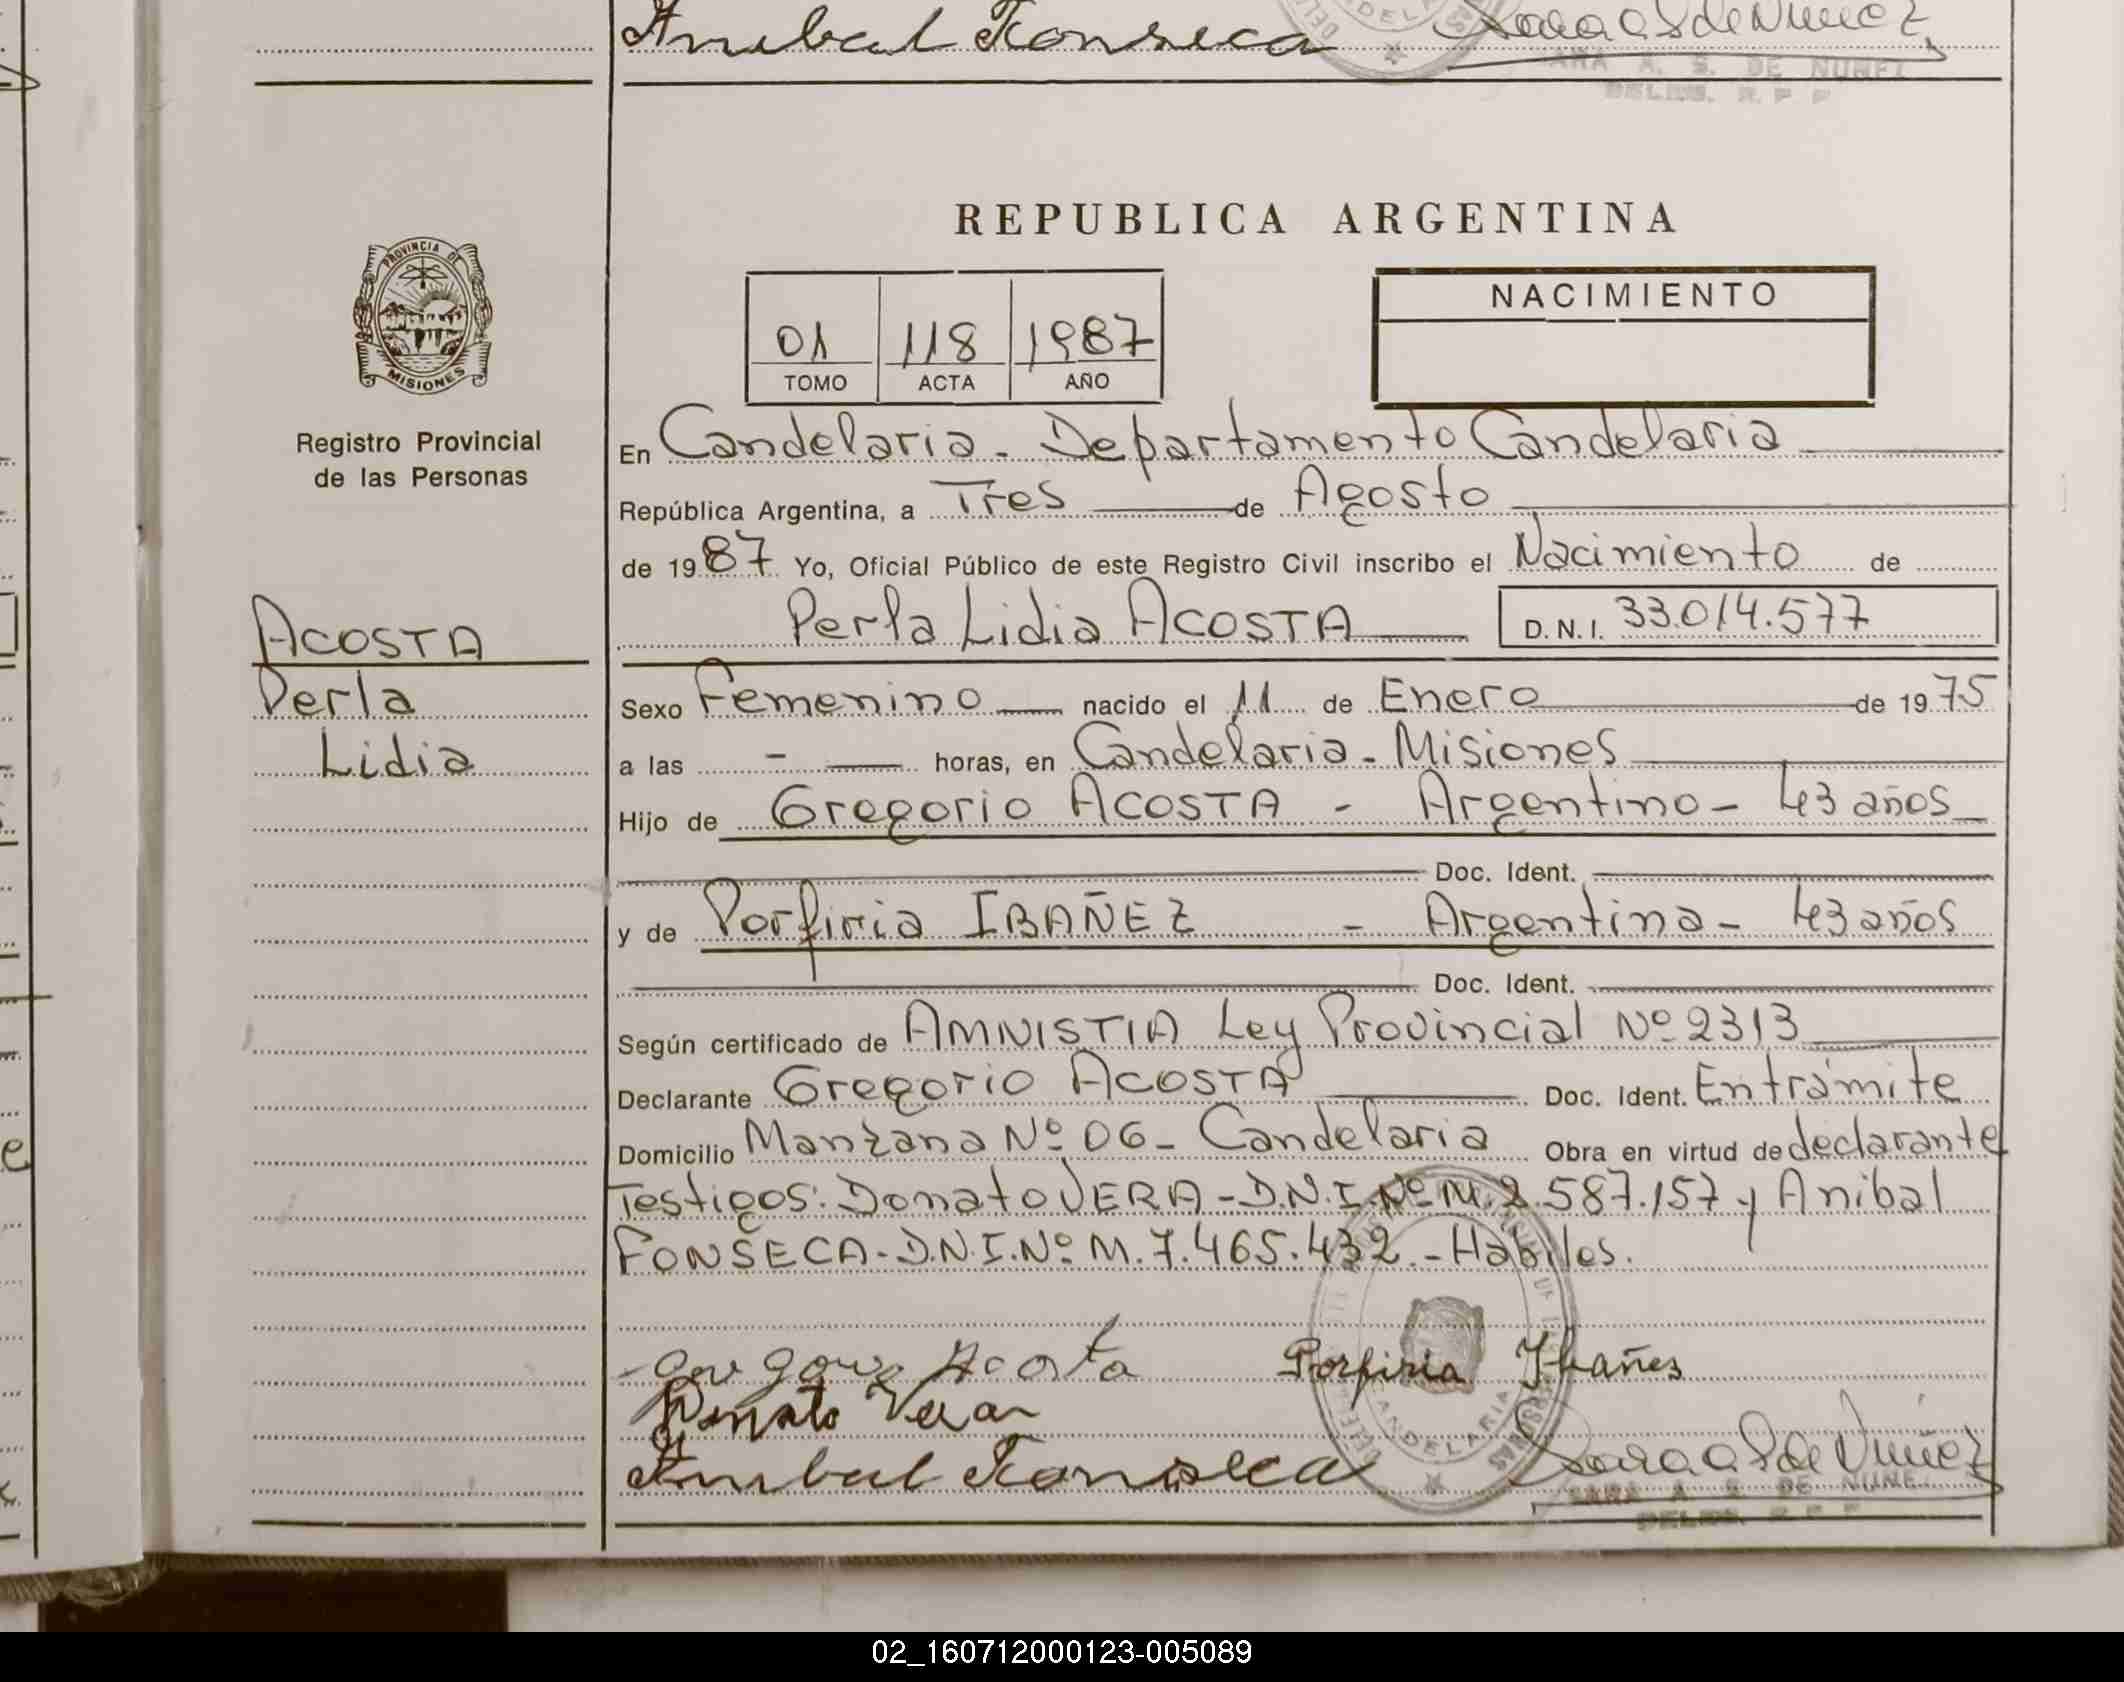 Anibal Fonseca
Sara A S de Nuñez
SARA A. S. DE NUÑEZ
DELEG. R. P. P
REPUBLICA ARGENTINA
PROVINCIA DE
MISIONES
NACIMIENTO
01 118 1987
TOMO ACTA AÑO
Registro Provincial
de las Personas
En Candelaria - Departamento Candelaria
República Argentina, a Tres de Agosto
de 1987 Yo, Oficial Público de este Registro Civil inscribo el Nacimiento de
Perla Lidia ACOSTA D. N. I. 33.014.577
ACOSTA
Perla
Lidia
Sexo Femenino nacido el 11 de Enero de 1975
a las - horas, en Candelaria - Misiones
Hijo de Gregorio ACOSTA - Argentino - 43 años
Doc. Ident.
y de Porfiria IBAÑEZ - Argentina - 43 años
Doc. Ident.
Según certificado de AMNISTIA Ley Provincial Nº 2313
Declarante Gregorio ACOSTA Doc. Ident. En trámite
Domicilio Manzana Nº 06 - Candelaria Obra en virtud de declarante
Testigos: Donato VERA - D.N.I. Nº M. 2.587.157 y Anibal
FONSECA - D.N.I. Nº M. 7.465.432. - Habiles.
Acosta Porfiria Ybañes
Donato Vera
Anibal Fonseca
Sara A S de Nuñez
SARA A S DE NUÑE
DELEG. R P P
CANDELARIA
02_160712000123-005089